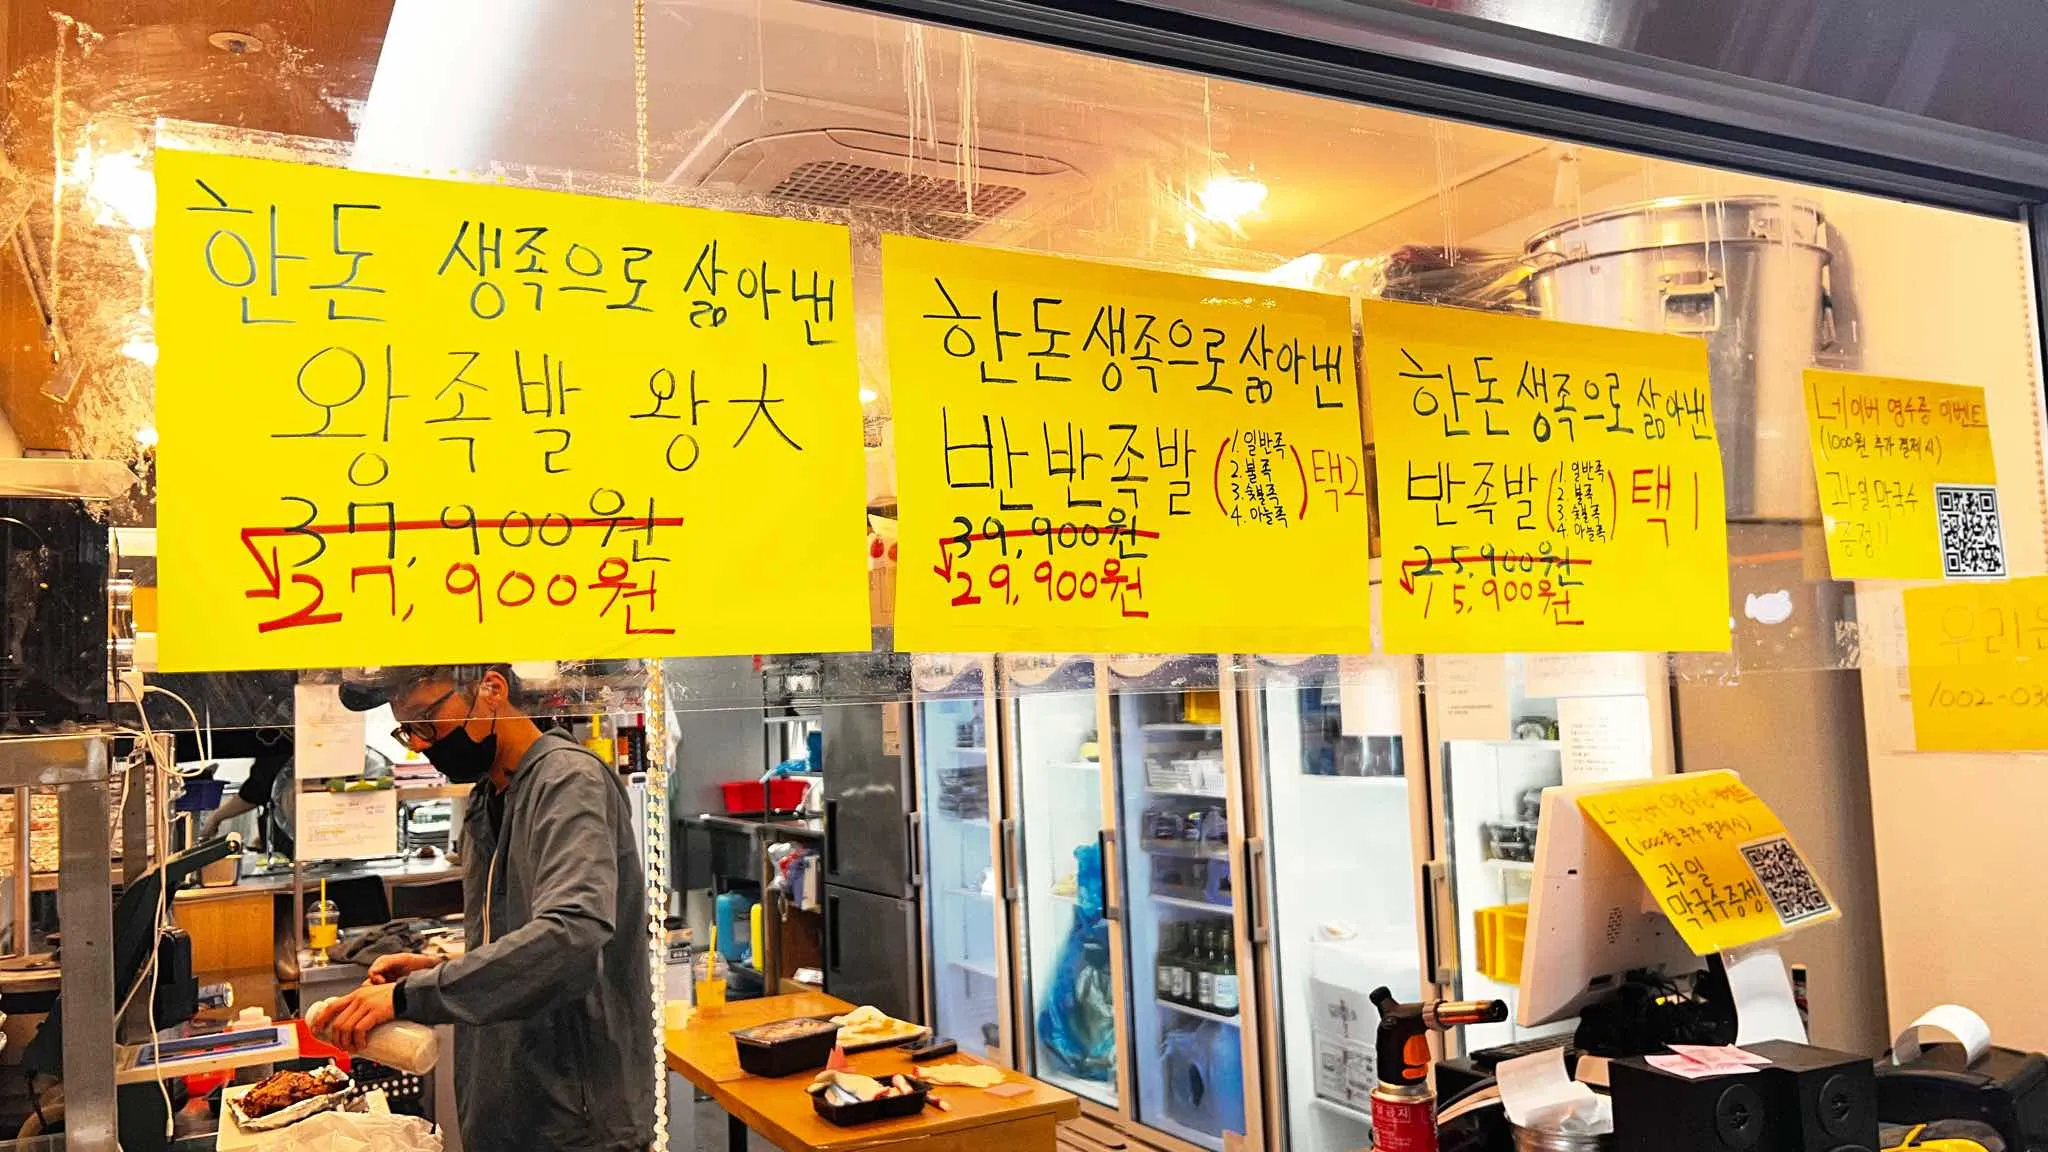 한돈 생족으로 삶아낸
왕족발 왕大
37,900원
27,900원
한돈생족으로삶아낸
반반족발
1. 일반족
2. 불족
3. 숯불족
4. 마늘족
택2
39,900원
29,900원
한돈 생족으로 삶아낸
반족발
1. 일반족
2. 불족
3. 숯불족
4. 마늘족
택1
25,900원
15,900원
네이버 영수증 이벤트
(1000원 추가 결제시)
과일 막국수
증정!!
우리은
1002-03
네이버 영수증 이벤트
(1000원 추가 결제시)
과일
막국수증정!